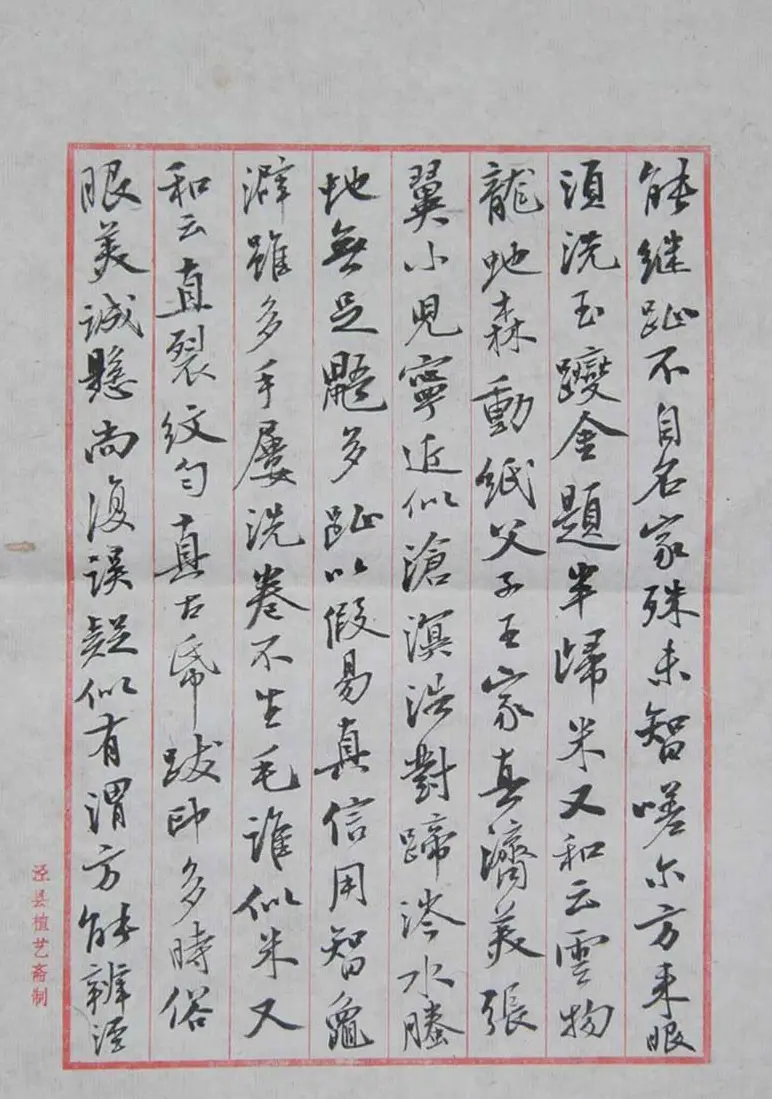 能継趾不自名家殊未智嗟尓方来眼
須洗玉躞金題半歸米又和云雲物
龍虵森動紙父子王家真濟美張
翼小児寧近似滄溟浩對蹄涔水螣
虵無足鼯多趾以假易真信用智龜
澼雖多手屢洗卷不生毛誰似米又
和云直裂紋勻真古帋跋印多時俗
眼美誠懸尚復誤疑似有渭方能辨涇
泾县植艺斋制